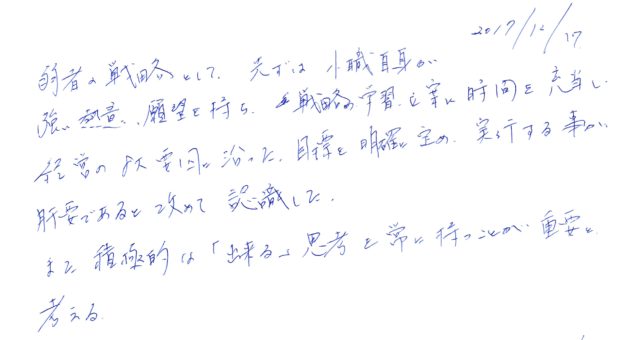 2017/12/17
弱者の戦略として、先ずは小職自身が
強い熱意、願望を持ち、戦略の学習、立案に時間を充当し
経営の8大要因に沿った、目標を明確に定め、実行する事が
肝要であると改めて認識した。
また積極的は「出来る」思考を常に持つことが重要と
考える。